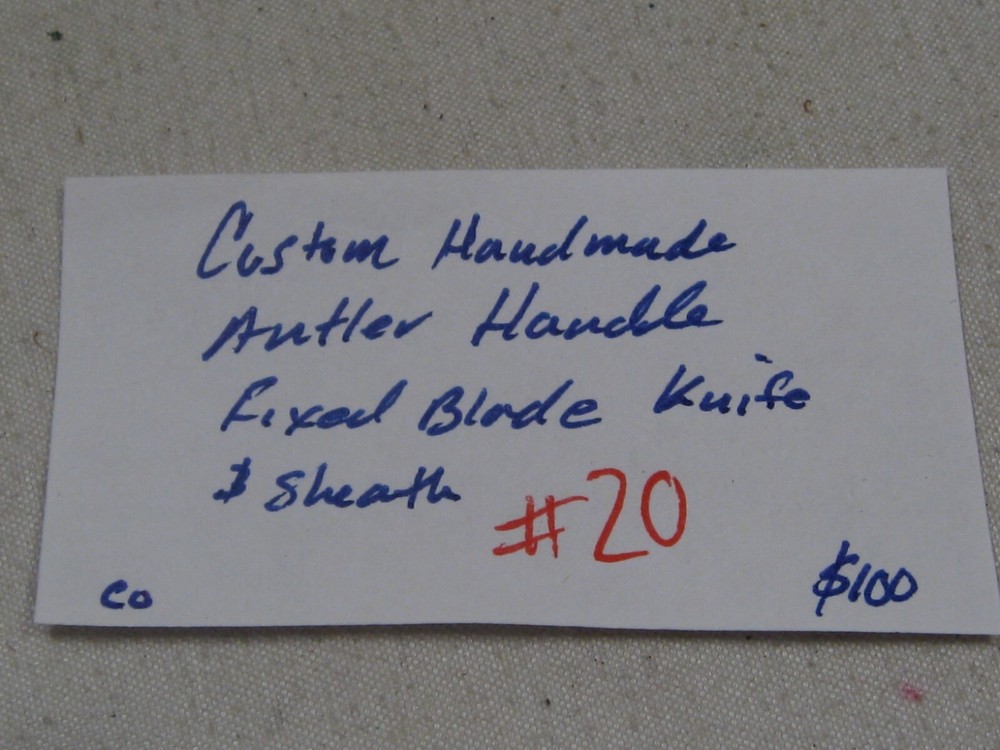 Custom Handmade
Antler Handle
Fixed Blade Knife
& Sheath #20
CO $100